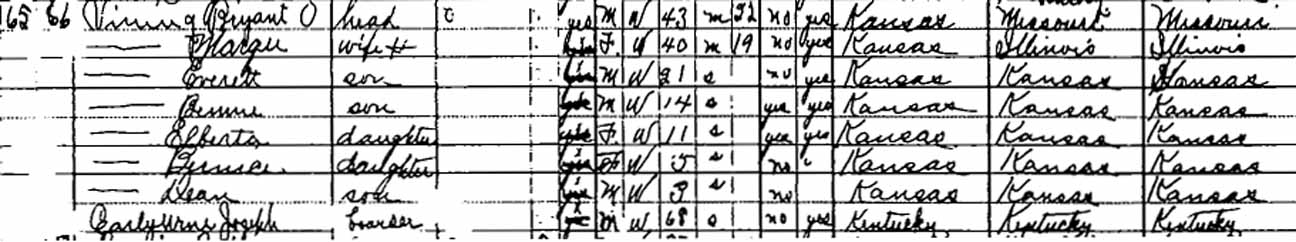 165 66 Vining Bryant O head yes M W 43 m 22 no yes Kansas Missouri Missouri
wife F W 40 m 19 no yes Kansas Illinois Illinois
Everett son M W 21 s no yes Kansas Kansas Kansas
son M W 14 s yes yes Kansas Kansas Kansas
Elberta daughter F W 11 s yes yes Kansas Kansas Kansas
daughter F W 5 s no Kansas Kansas Kansas
Dean son M W 3 s no Kansas Kansas Kansas
Joseph M W 68 s no yes Kentucky Kentucky Kentucky